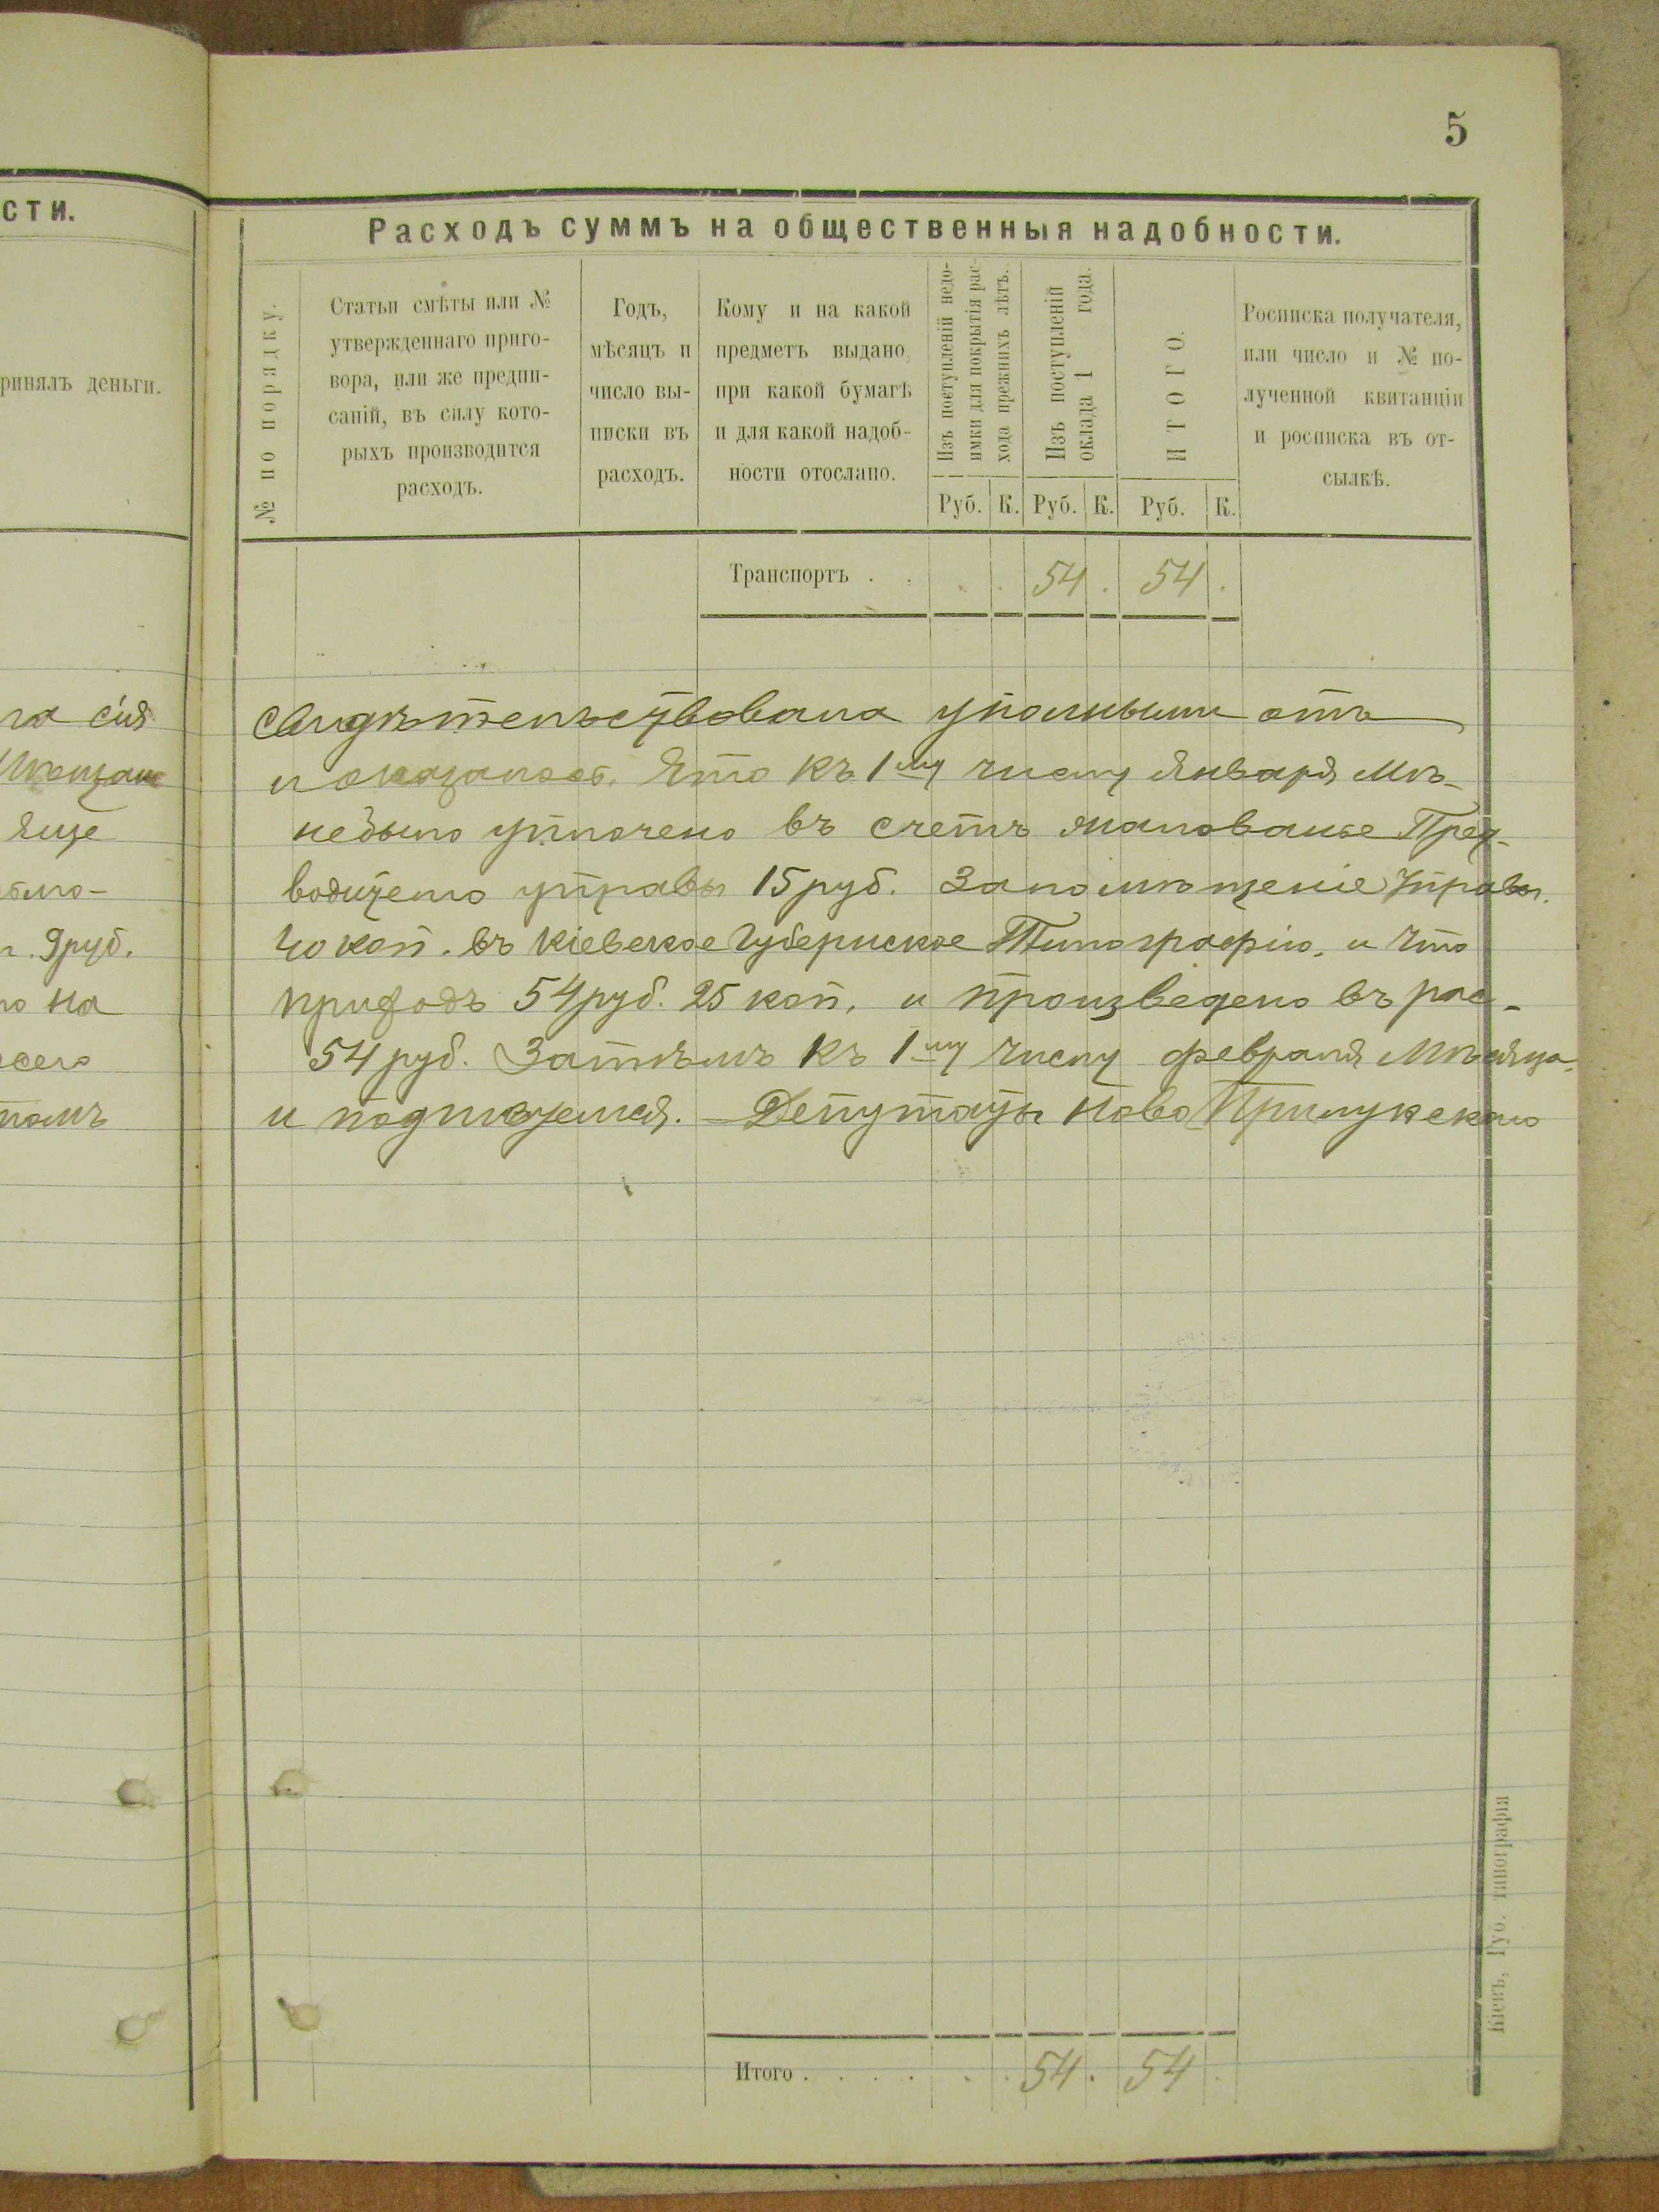 сти.
ринялъ деньги.
сія
еще
9 руб.
на
сего
5
Расходъ суммъ на общественныя надобности.
№ по порядку.
Статьи смѣты или №
утвержденнаго приго-
вора, или же предпи-
саній, въ силу кото-
рыхъ производится
расходъ.
Годъ,
мѣсяцъ и
число вы-
писки въ
расходъ.
Кому и на какой
предметъ выдано
при какой бумагѣ
и для какой надоб-
ности отослано.
Изъ поступленій недо-
имки для покрытія рас-
хода прежнихъ лѣтъ.
Изъ поступленій
оклада 1 года.
ИТОГО.
Росписка получателя,
или число и № по-
лученной квитанціи
и росписка въ от-
сылкѣ.
Руб. К. Руб. К. Руб. К.
Транспортъ . . . . 54 . 54 .
свидѣтельствована отъ
и оказалось. Что къ 1му числу Января Мѣ-
небыло уплочено въ счетъ жалованье Пред-
водителю управы 15 руб. Запомѣщеніе Управы.
40 коп. въ Кіевское Губернское Типографію, и что
приходъ 54 руб. 25 коп. и произведено въ рас-
54 руб. Затѣмъ къ 1му числу февраля Мѣсяца
и подписуемся. — Депутаты Ново Прилукскаго
Итого . . . . . . 54 . 54 .
Кіевъ, Губ. типографія